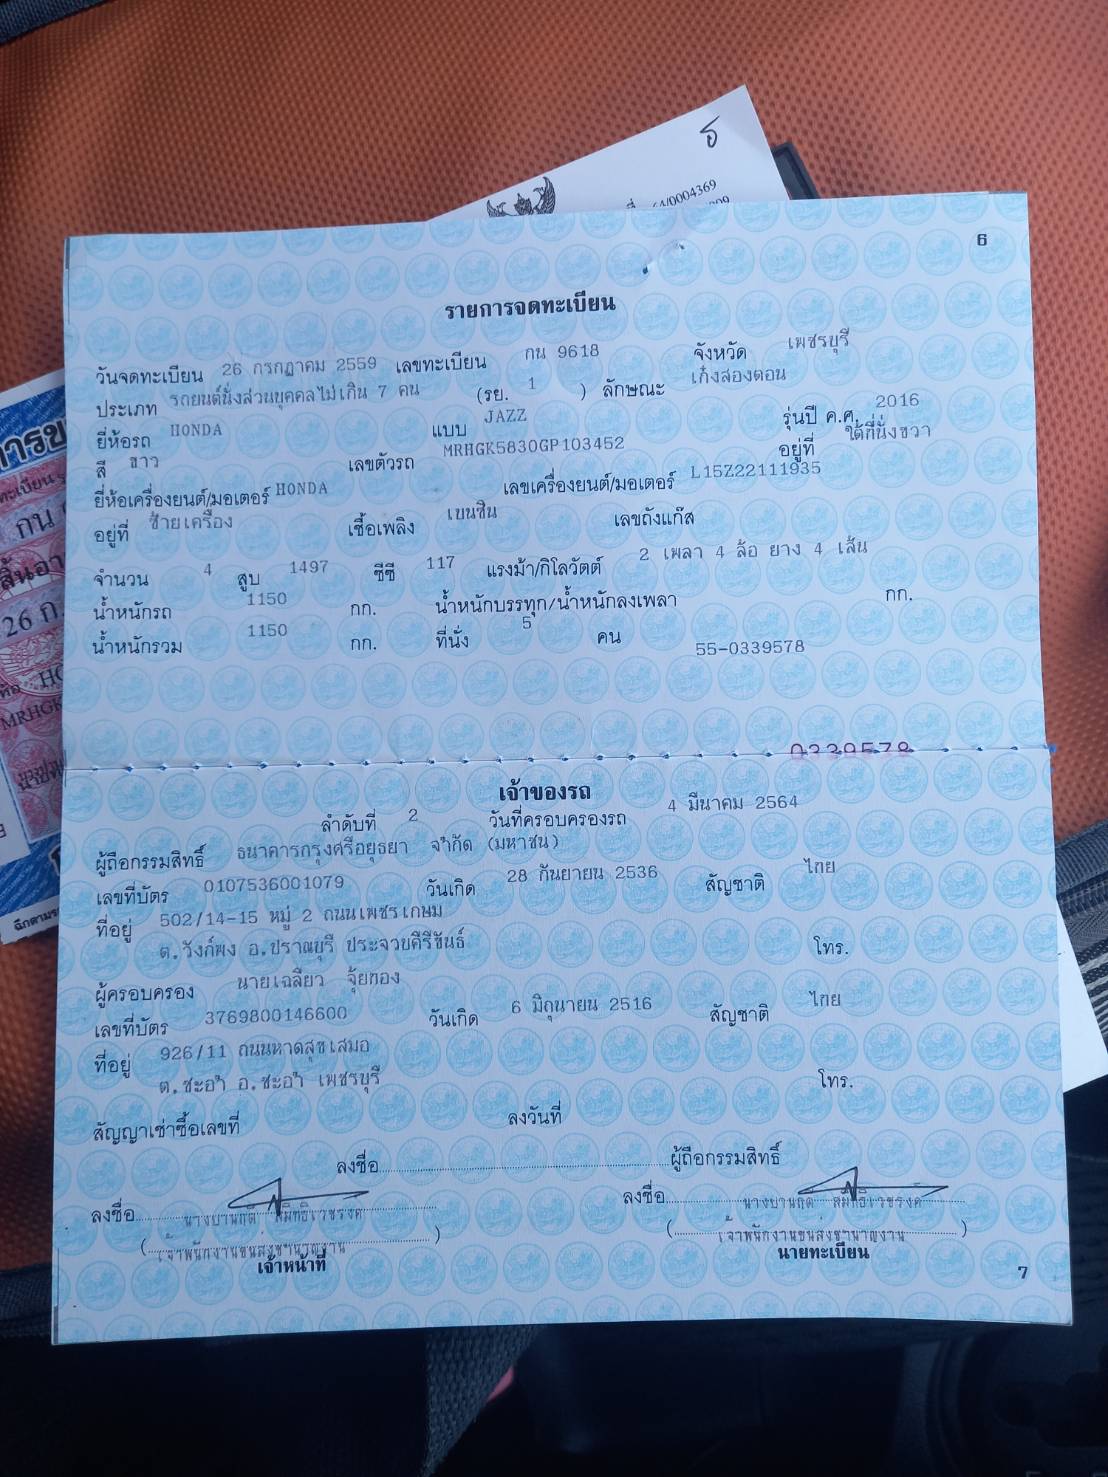 ธ
6
รายการจดทะเบียน
วันจดทะเบียน 26 กรกฎาคม 2559 เลขทะเบียน กน 9618 จังหวัด เพชรบุรี
ประเภท รถยนต์นั่งส่วนบุคคลไม่เกิน 7 คน (รย. 1 ) ลักษณะ เก๋งสองตอน
ยี่ห้อรถ HONDA แบบ JAZZ รุ่นปี ค.ศ. 2016
สี ขาว เลขตัวรถ MRHGK5830GP103452 อยู่ที่ ใต้ที่นั่งขวา
ยี่ห้อเครื่องยนต์/มอเตอร์ HONDA เลขเครื่องยนต์/มอเตอร์ L15Z22111935
อยู่ที่ ซ้ายเครื่อง เชื้อเพลิง เบนซิน เลขถังแก๊ส
จำนวน 4 สูบ 1497 ซีซี 117 แรงม้า/กิโลวัตต์ 2 เพลา 4 ล้อ ยาง 4 เส้น
น้ำหนักรถ 1150 กก. น้ำหนักบรรทุก/น้ำหนักลงเพลา กก.
น้ำหนักรวม 1150 กก. ที่นั่ง 5 คน 55-0339578
0339578
เจ้าของรถ
ลำดับที่ 2 วันที่ครอบครองรถ 4 มีนาคม 2564
ผู้ถือกรรมสิทธิ์ ธนาคารกรุงศรีอยุธยา จำกัด (มหาชน)
เลขที่บัตร 0107536001079 วันเกิด 28 กันยายน 2536 สัญชาติ ไทย
ที่อยู่ 502/14-15 หมู่ 2 ถนนเพชรเกษม
ต.วังก์พง อ.ปราณบุรี ประจวบคีรีขันธ์ โทร.
ผู้ครอบครอง นายเฉลียว จุ้ยทอง
เลขที่บัตร 3769800146600 วันเกิด 6 มิถุนายน 2516 สัญชาติ ไทย
ที่อยู่ 926/11 ถนนหาดสุขเสมอ
ต.ชะอำ อ.ชะอำ เพชรบุรี โทร.
สัญญาเช่าซื้อเลขที่ ลงวันที่
ลงชื่อ ผู้ถือกรรมสิทธิ์
ลงชื่อ ลงชื่อ
(เจ้าพนักงานขนส่งชำนาญงาน) (เจ้าพนักงานขนส่งชำนาญงาน)
เจ้าหน้าที่ นายทะเบียน
7